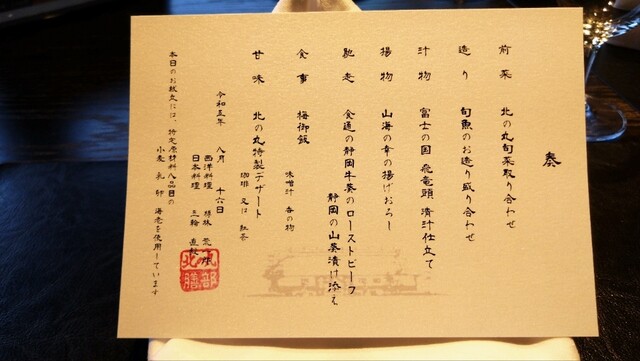 奏
前菜 北の丸旬菜取り合わせ
造り 旬魚のお造り盛り合わせ
汁物 富士の国 飛竜頭 清汁仕立て
揚物 山海の幸の揚げおろし
馳走 食通の静岡牛葵のローストビーフ
静岡の山葵漬け添え
食事 梅御飯
味噌汁 香の物
甘味 北の丸特製デザート
珈琲 又は 紅茶
令和五年 八月 十六日
西洋料理
日本料理 三輪 直
本日のお献立には、特定原材料八品目の
小麦 乳 卵 海老を使用しています